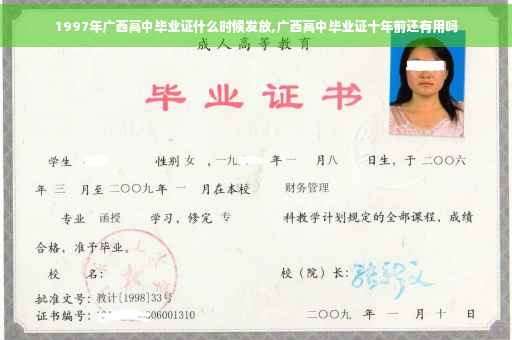 1997年广西高中毕业证什么时候发放,广西高中毕业证十年前还有用吗
成人高等教育
毕业证书
学生 性别 女 ,一九 年一 月八 日生,于二〇〇六
年 三 月至二〇〇九年 一 月在本校 财务管理
专业 函授 学习,修完 专 科教学计划规定的全部课程,成绩
合格,准予毕业。
校 名: 校(院)长:
批准文号:教计[1998]33号
证书编号: 006001310 二〇〇九 年 一 月 十 日